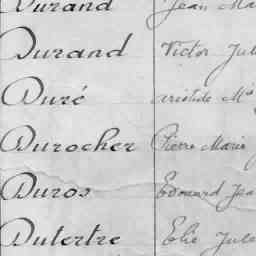 Durand Jean Ma
Durand Victor Jul
Duré Aristide M
Durocher Pierre Marie
Duros Edouard Jea
Dutertre Elie Jule